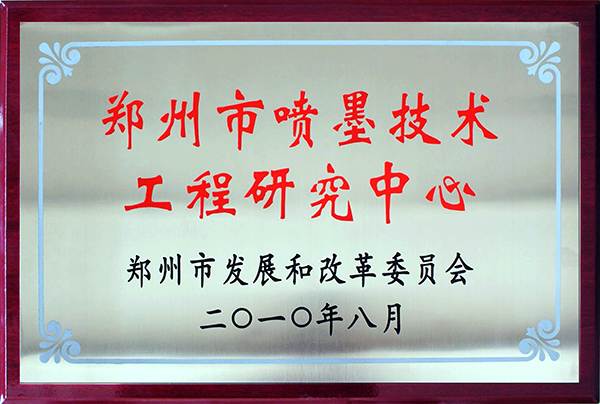 郑州市喷墨技术
工程研究中心
郑州市发展和改革委员会
二〇一〇年八月